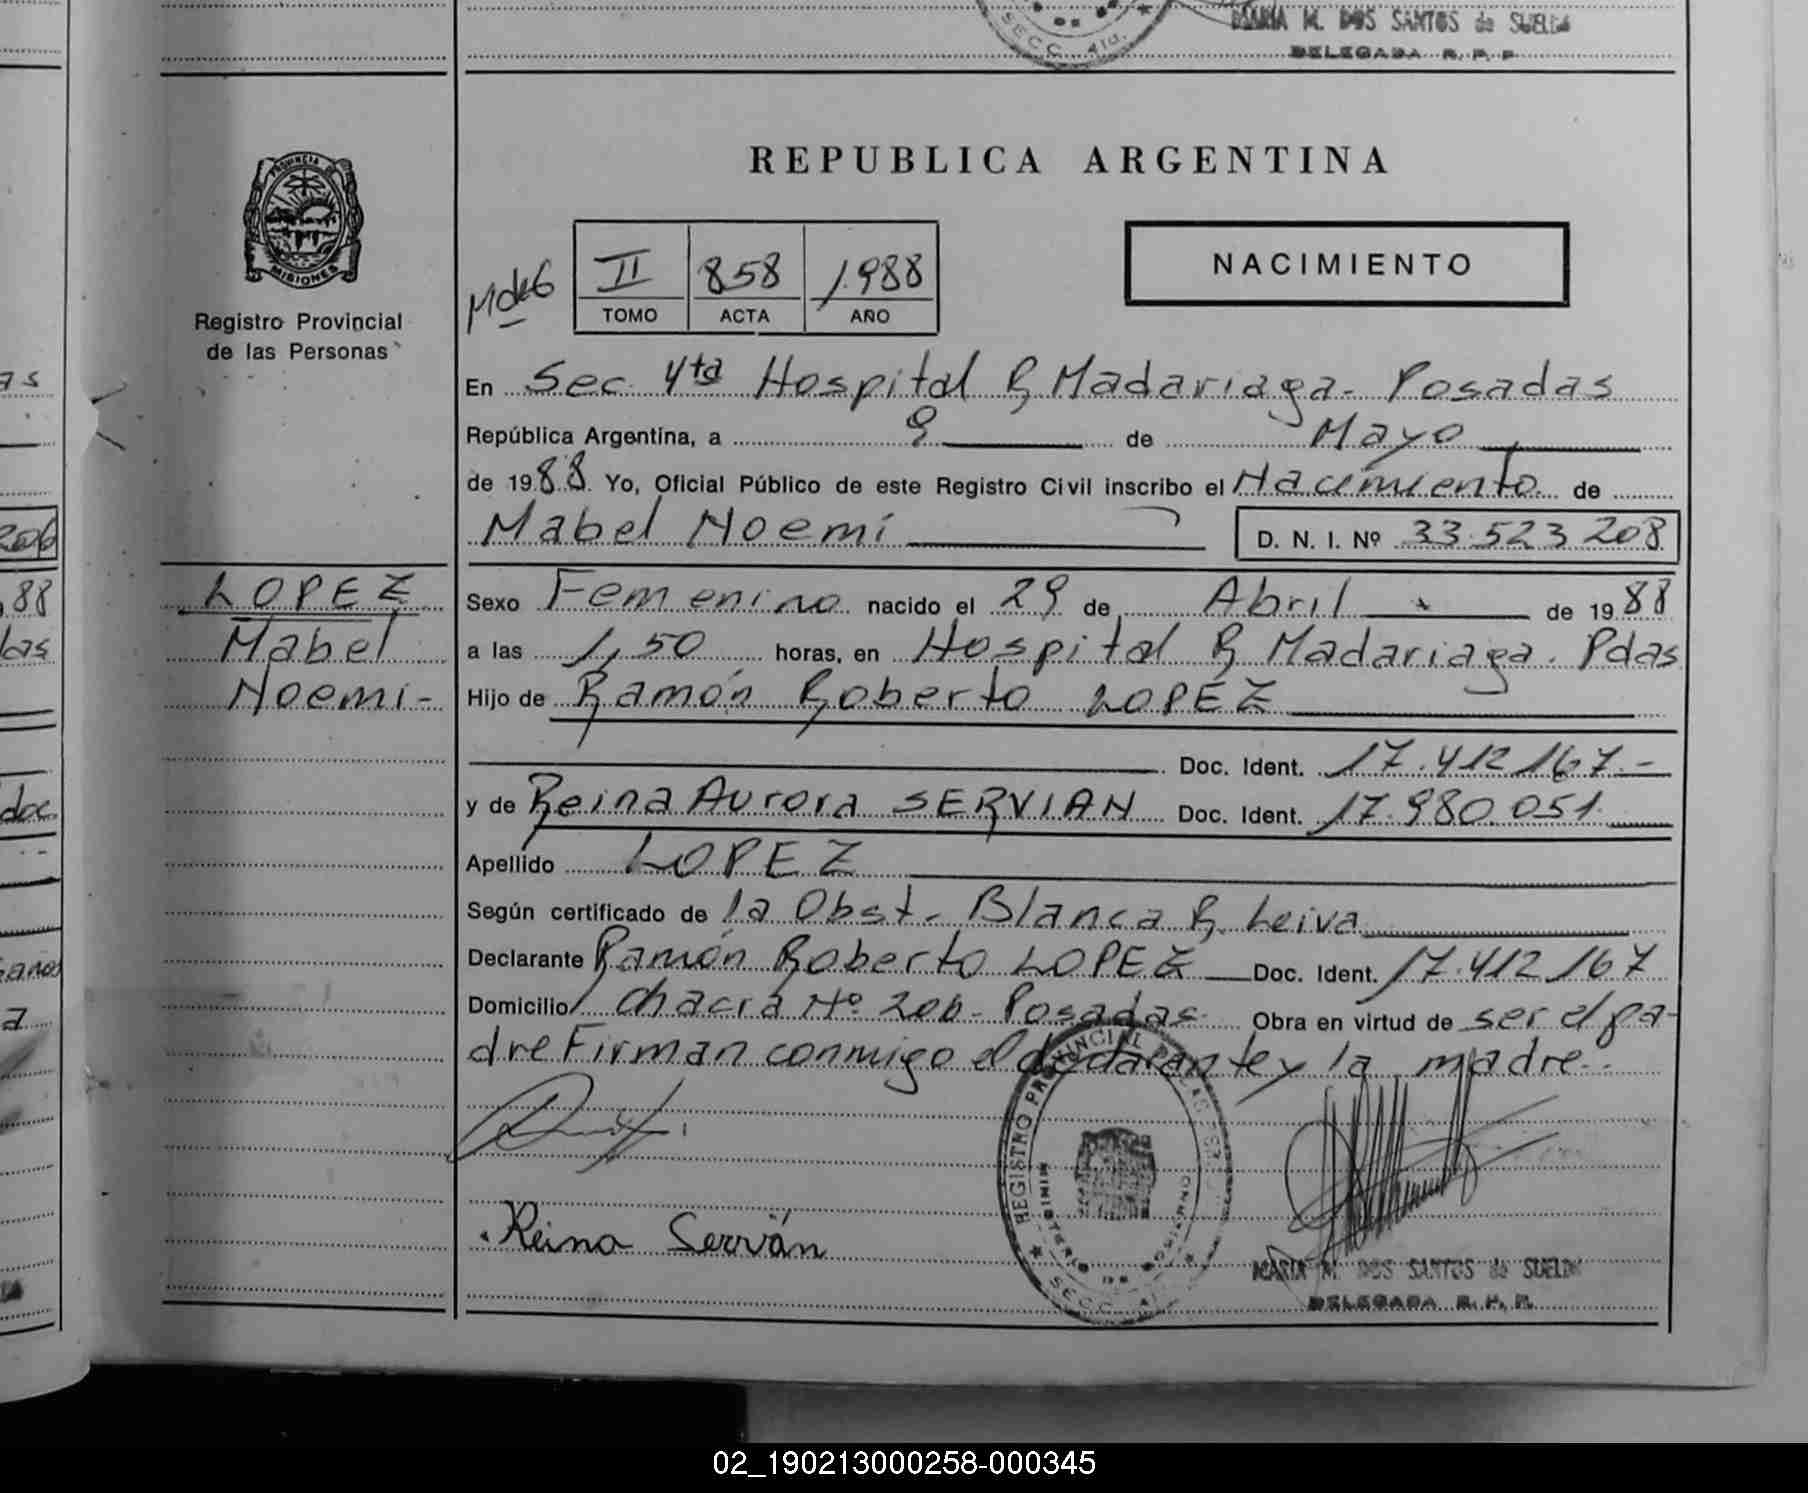 MARIA M. DOS SANTOS de SUELDO
DELEGADA R. P. P.
SECC. 4ta.
PROVINCIA DE
MISIONES
Registro Provincial
de las Personas
REPUBLICA ARGENTINA
II 858 1.988
TOMO ACTA AÑO
NACIMIENTO
En Sec. 4ta Hospital R. Madariaga - Posadas
República Argentina, a 9 de Mayo
de 1988 Yo, Oficial Público de este Registro Civil inscribo el Nacimiento de
Mabel Noemí D. N. I. Nº 33.523.208
LOPEZ
Mabel
Noemi-
Sexo Femenino nacido el 29 de Abril de 1988
a las 1,50 horas, en Hospital R. Madariaga. Pdas
Hijo de Ramón Roberto LOPEZ
Doc. Ident. 17.412.167.-
y de Reina Aurora SERVIAN Doc. Ident. 17.980.051
Apellido LOPEZ
Según certificado de la Obst. Blanca R. Leiva
Declarante Ramón Roberto LOPEZ Doc. Ident. 17.412.167
Domicilio Chacra Nº 200- Posadas Obra en virtud de ser el pa-
dre Firman conmigo el declarante y la madre.
REGISTRO PROVINCIAL
MINISTERIO DE GOBIERNO
SECC.
Reina Serván
MARIA M. DOS SANTOS de SUELDO
DELEGADA R. P. P.
206
88
das
doc.
02_190213000258-000345